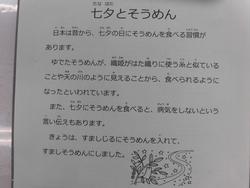 七夕とそうめん
日本は昔から、七夕の日にそうめんを食べる習慣が
あります。
ゆでたそうめんが、織姫がはた織りに使う糸と似ている
ことや天の川のように見えることから、食べられるように
なったといわれています。
また、七夕にそうめんを食べると、病気をしないという
言い伝えもあります。
きょうは、すましじるにそうめんを入れて、
すましそうめんにしました。